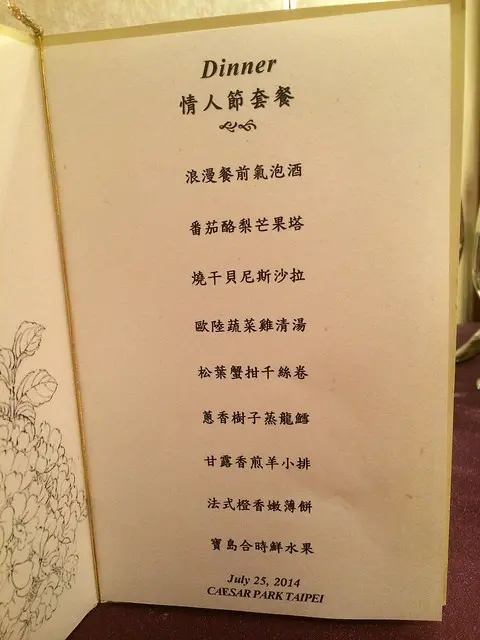 Dinner
情人節套餐
浪漫餐前氣泡酒
番茄酪梨芒果塔
燒干貝尼斯沙拉
歐陸蔬菜雞清湯
松葉蟹拑千絲卷
蔥香樹子蒸龍鱈
甘露香煎羊小排
法式橙香嫩薄餅
寶島合時鮮水果
July 25, 2014
CAESAR PARK TAIPEI